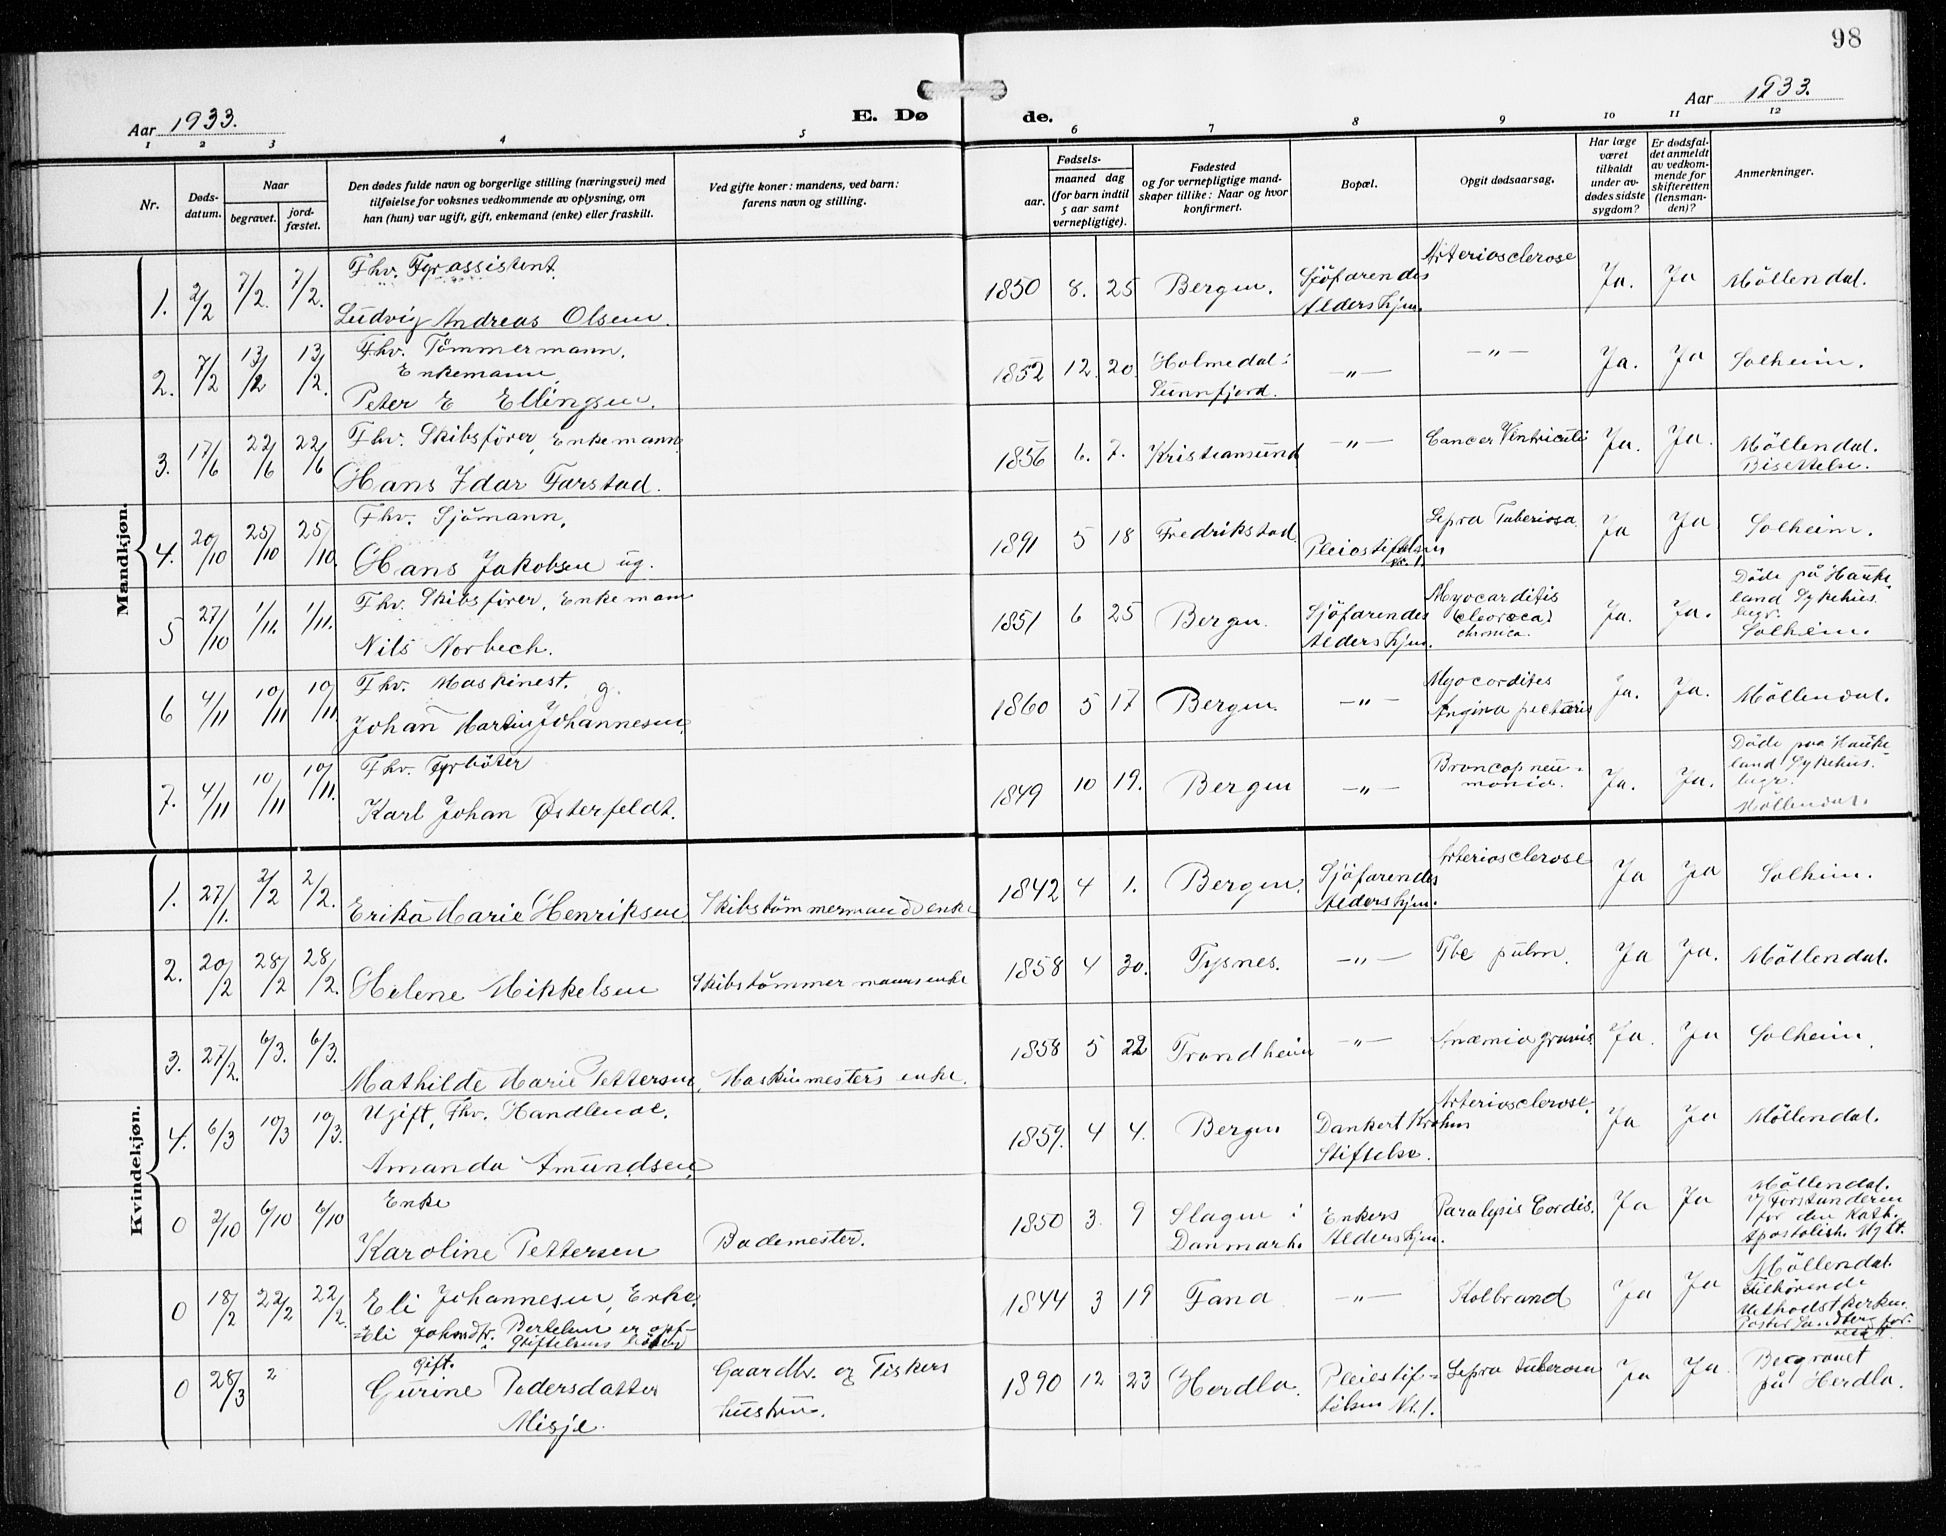 98
Aar 1933.
E. Døde.
Aar 1933.
1 2 3 4 5 6 7 8 9 10 11 12
Nr.
Døds-
datum.
Naar
begravet.
jord-
fæstet.
Den dødes fulde navn og borgerlige stilling (næringsvei) med
tilføielse for voksnes vedkommende av oplysning, om
han (hun) var ugift, gift, enkemand (enke) eller fraskilt.
Ved gifte koner: mandens, ved barn:
farens navn og stilling.
Fødsels-
aar.
maaned dag
(for barn indtil
5 aar samt
vernepligtige).
Fødested
og for vernepligtige mand-
skaper tillike: Naar og hvor
konfirmert.
Bopæl.
Opgit dødsaarsag.
Har læge
været
tilkaldt
under av-
dødes sidste
sygdom?
Er dødsfal-
det anmeldt
av vedkom-
mende for
skifteretten
(lensman-
den)?
Anmerkninger.
Mandkjøn.
1. 2/2 7/2. 7/2. Fhv. Fyrassistent.
Ludvig Andreas Olsen.
1850 8. 25 Bergen. Sjöfarendes
Alders hjem.
Arteriosclerose Ja. Ja Möllendal.
2. 7/2 13/2 13/2. Fhv. Tömmermann,
Enkemann,
Peter E Ellingsen.
1852 12. 20. Holmedal i
Sunnfjord.
-"- -"- Ja. Ja Solheim.
3. 17/6 22/6 22/6 Fhv. Skibsfører, Enkemann
Hans Idar Farstad.
1856 6. 7. Kristiansund -"- Cancer Ventriculi Ja. Ja. Möllendal.
Bisettelse.
4. 20/10 25/10 25/10. Fhv. Sjömann,
Hans Jakobsen ug.
1891 5 18 Fredrikstad Pleiestiftelsen
Nr. 1.
Lepra Tuberiosa. Ja Ja Solheim.
5 27/10 1/11. 1/11. Fhv. Skibsfører, Enkemann
Nils Norbech.
1851 6 25 Bergen. Sjöfarendes
Alders hjem.
Myocarditis
chronica.
Ja. Ja. Döde på Hauke-
land Sykehus.
Solheim.
6 4/11 10/11 10/11. Fhv. Maskinest. g.
Johan Martin Johannesen.
1860 5 17 Bergen. -"- Myocordites
Angina pectoris Ja. Ja. Möllendal.
7. 4/11 10/11 10/11. Fhv. Fyrböter
Karl Johan Østerfeldt.
1849 10 19. Bergen -"- Broncopneu-
monia.
Ja. Ja. Döde paa Hauke-
land Sykehus.
Möllendal.
Kvindekjøn.
1. 27/1. 2/2 2/2. Erika Marie Henriksen Skibstömmermandsenke
1842 4 1. Bergen. Sjöfarendes
Alders hjem.
Arteriosclerose Ja Ja Solheim.
2. 20/2 28/2 28/2. Helene Mikkelsen Skibstömmermannsenke
1858 4 30. Tysnes. -"- Tbc pulm. Ja Ja. Möllendal.
3. 27/2. 6/3. 6/3. Mathilde Marie Pettersen, Maskinmesters enke.
1858 5 22 Trondheim -"- Anæmia gravis. Ja. Ja Solheim.
4. 6/3 10/3 10/3. Ugift, Fhv. Handlende.
Amanda Amundsen,
1859. 4 4. Bergen Dankert Krohns
Stiftelse.
Arteriosclerose. Ja Ja Möllendal.
0 2/10 6/10 6/10 Enke
Karoline Pettersen Bademester.
1850 3. 9 Slagen i
Danmark.
Enkers
Alders hjem.
Paralysis Cordis. Ja Ja Möllendal.
v/ Forstanderen
for den Kath.
Apostolisk Mght.
0 18/2 22/2 22/2. Eli Johannesen, Enke.
=Eli Johnsdtr. Bertelsen er opf-
Stiftelsens böker
1844 3 19 Fana -"- Kolbrand Ja Ja Möllendal.
Tilhørende
Methodistkirken.
Pastor Sandberg for-
rettet.
0 28/3 2 gift.
Gurine Pedersdatter
Misje.
Gaardbr. og Fiskers
hustru.
1890 12 23 Herdla. Pleiestif-
telsen Nr. 1.
Lepra tuberosa Ja Ja. Begravet
på Herdla.